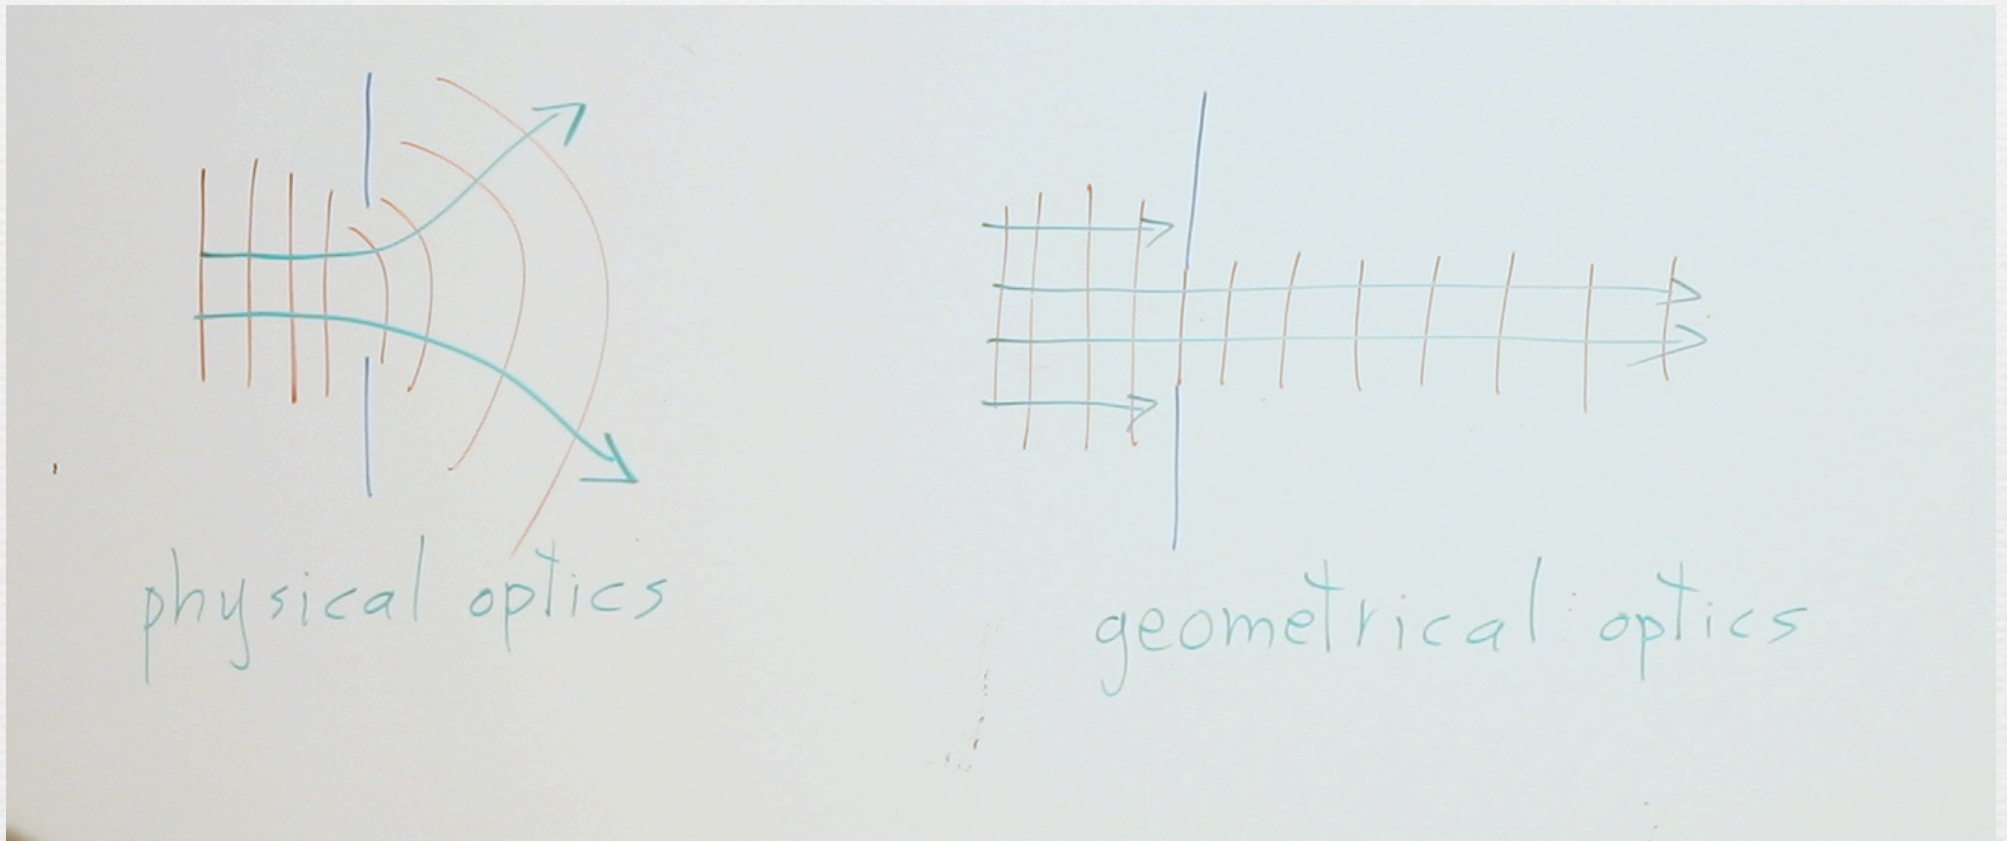 physical optics
geometrical optics